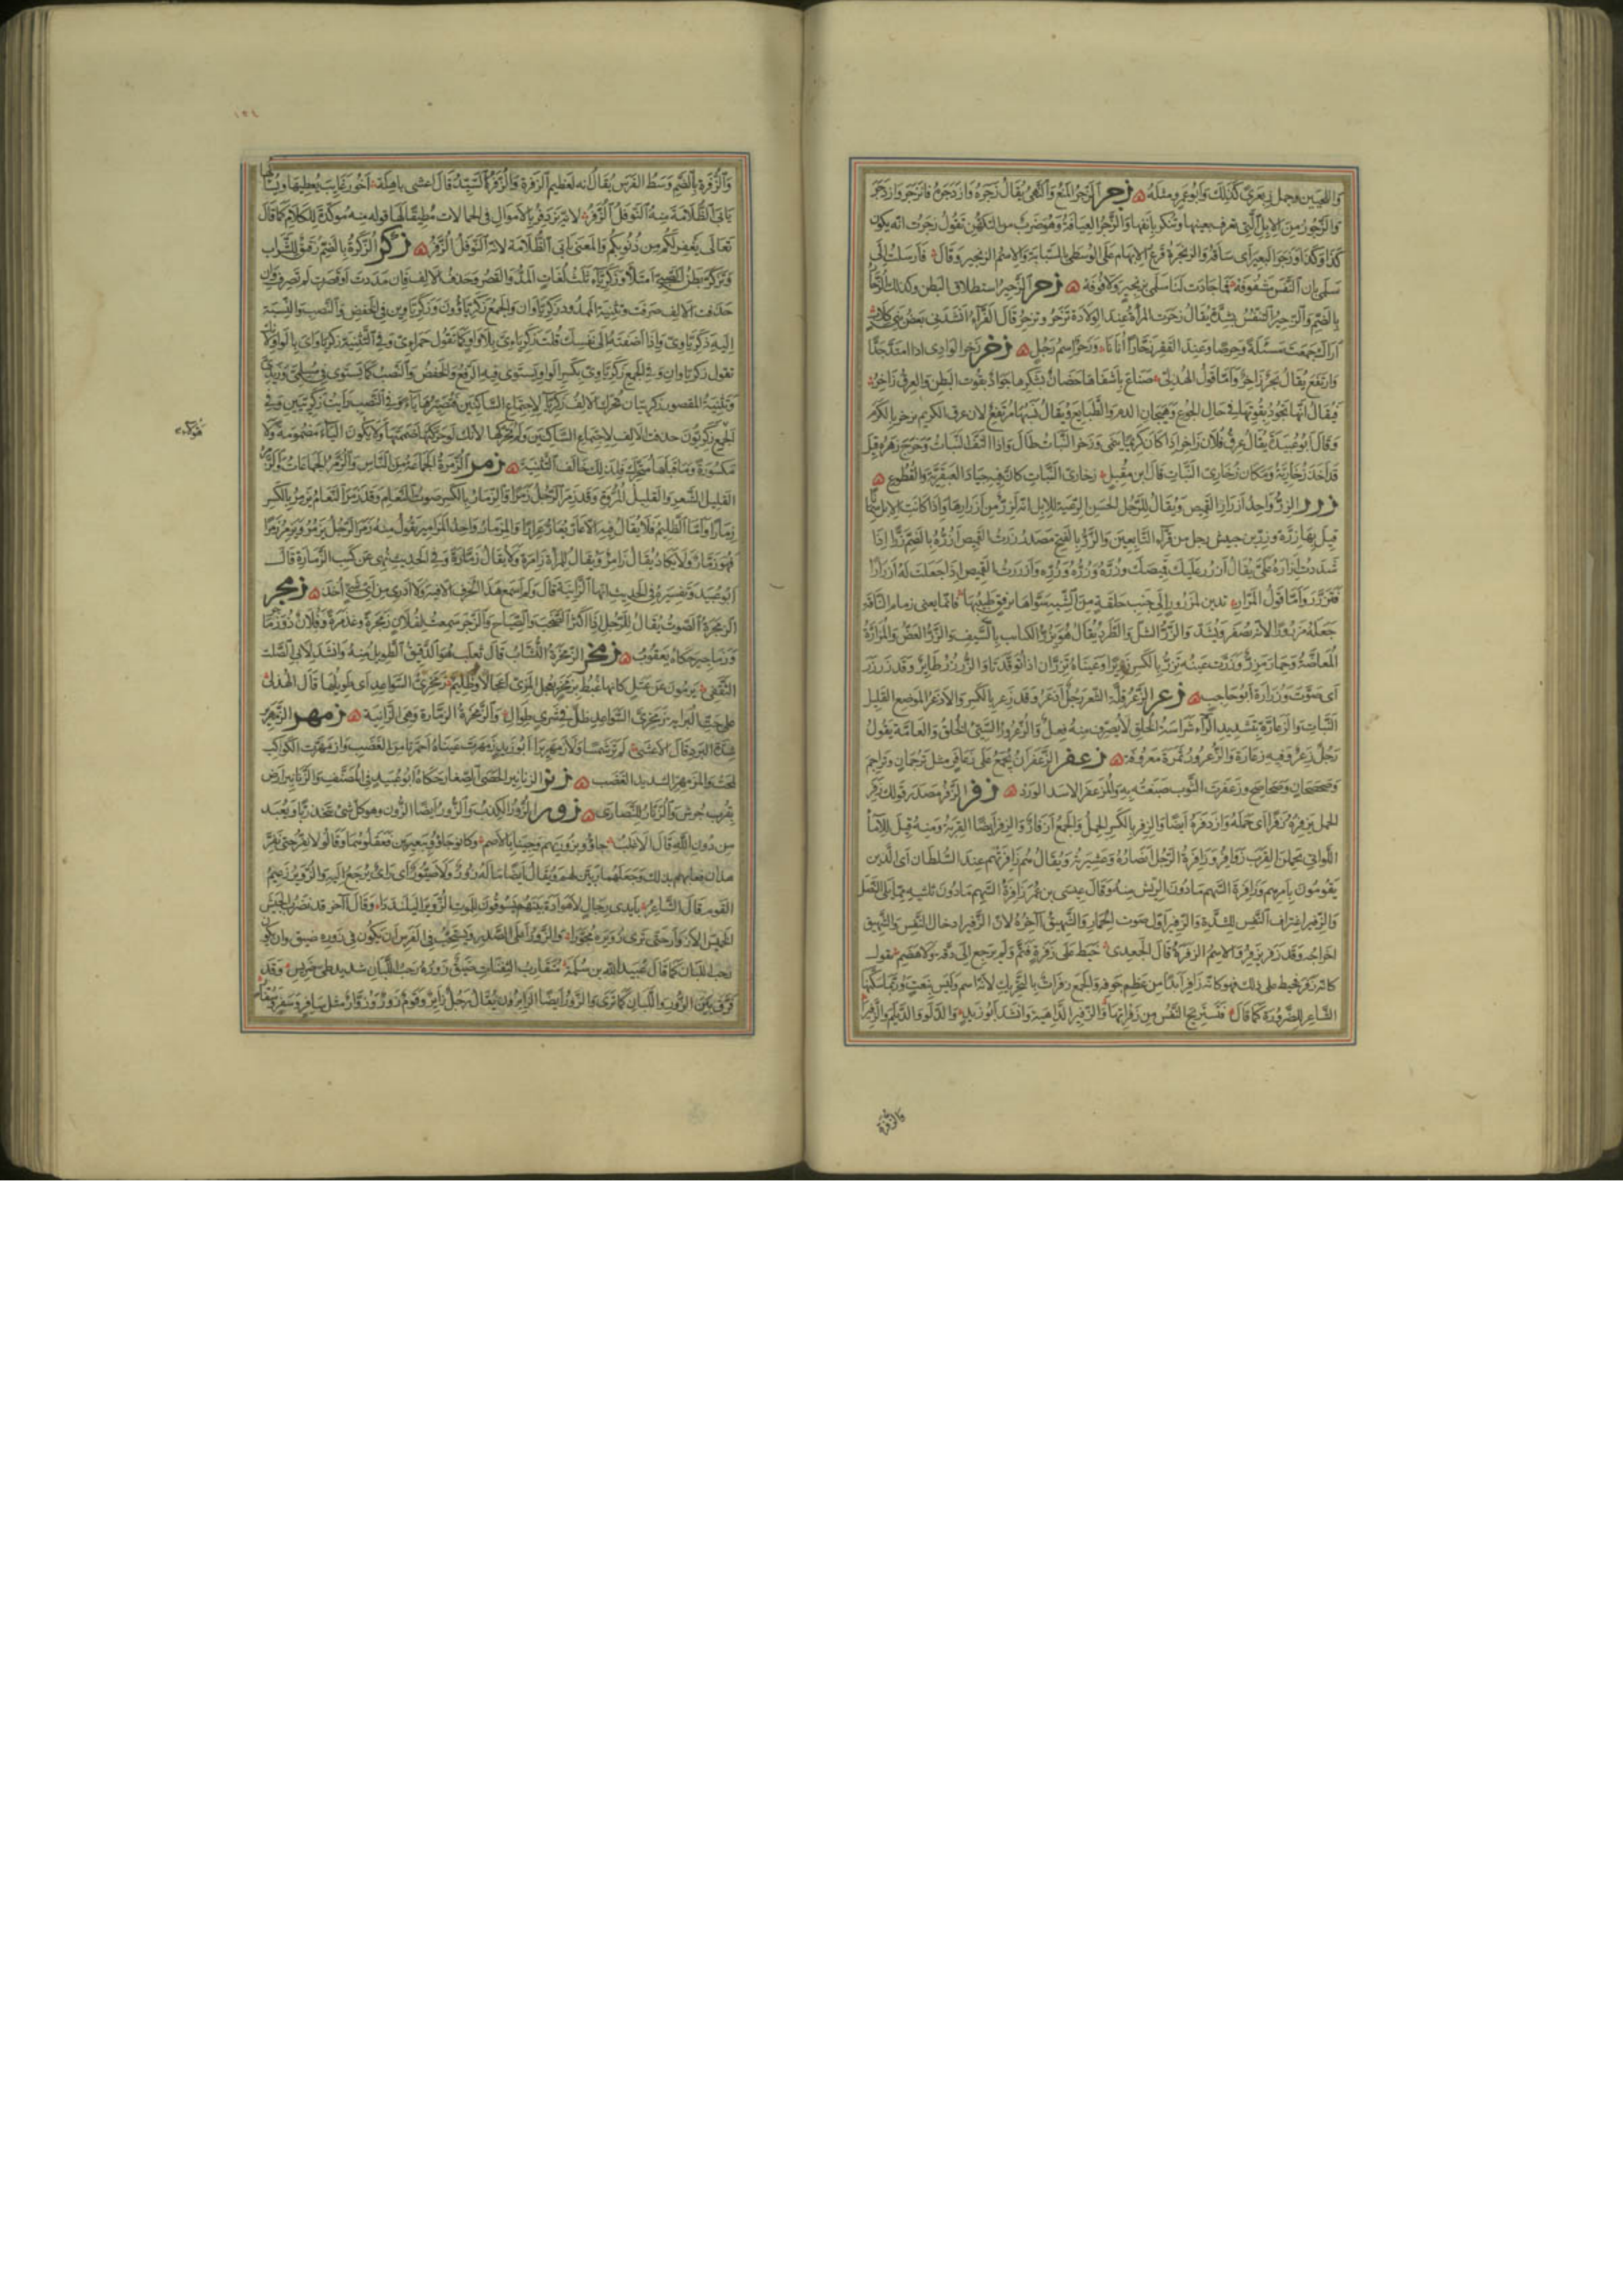 واللحيين وجمل زبعرى كذلك وابو عمرو مثله زجر الزجر المنع والنهى يقال زجره وازدجره فانزجر وازدجر
والزجور من الابل التى تعرف بعينها وتنكر بانفها والزجر العيافة وهو ضرب من التكهن تقول زجرت انه يكون
كذا وكذا وزجر البعير اى ساقه والزنجرة قرع الابهام على الوسطى بالسبابة والاسم الزنجير وقال فارسلت الى
سلمى بان النفس مشغوفة فما جادت لنا سلمى بزنجير ولا فوفة زحر الزحير استطلاق البطن وكذلك الزحار
بالضم والزحير التنفس بشدة يقال زحرت المراة عند الولادة تزحر وتزحر قال الفراء انشدنى بعض بنى كلاب
اراك جمعت مسئلة وحرصا وعند الفقر زحارا انانا وزحر اسم رجل زخر زخر الوادى اذا امتد جدا
وارتفع يقال بحر زاخر واما قول الهذلى صناع باشفاها حصان بشكرها جواد بقوت البطن والعرق زاخر
فيقال انها تجود بقوتها فى حال الجوع وهيجان الدم والطبايع ويقال نسبها مرتفع لان عرق الكريم يزخر بالكرم
وقال ابو عبيدة يقال عرق فلان زاخر اذا كان كريما ينمى وزخر النبات طال واذا التف النبات وخرج زهره قيل
قد اخذ زخاريه ومكان زخارى النبات قال ابن مقبل زخارى النبات كان فيه جياد العبقرية والقطوع
زرر الزر واحد ازرار القميص ويقال للرجل الحسن الرعية للابل انه لزر من ازرارها واذا كانت الابل سمانا
قيل بها زرة وزر بن حبيش رجل من قراء التابعين والزر بالفتح مصدر زررت القميص ازره بالضم زرا اذا
شددت ازراره على يقال ازرر عليك قميصك وزره وزره وزره وازررت القميص اذا جعلت له ازرارا
فتزرر واما قول المرار تدين لمزرور الى جنب حلقة من الشبه سواها برفق طبيبها فانما يعنى زمام الناقة
جعله مزرورا لانه يضفر ويشد والزر الشل والطرد يقال هو يزر الكتاب بالسيف والزر العض والمزارة
المعاضة وحمار مزر وزرت عينه تزر بالكسر زريرا وعيناه تزران اذا توقدتا والزرزر طاير وقد زرزر
اى صوت وزرارة ابو حاجب زعر الزعر قلة الشعر رجل ازعر وقد زعر بالكسر والازعر الموضع القليل
النبات والزعارة بتشديد الراء شراسة الخلق لا يصرف منه فعل والزعرور السيئ الخلق والعامة يقول
رجل زعر وفيه زعارة والزعرور ثمرة معروفة زعفر الزعفران يجمع على زعافر مثل ترجمان وتراجم
وصحصحان وصحاصح وزعفرت الثوب صبغته به والمزعفر الاسد الورد زفر الزفر مصدر قولك زفر
الحمل يزفره زفرا اى حمله وازدفره ايضا والزفر بالكسر الحمل والجمع ازفار والزفر ايضا القربة ومنه قيل للاماء
اللواتى يحملن القرب زوافر وزافرة الرجل انصاره وعشيرته ويقال هم زافرتهم عند السلطان اى الذين
يقومون بامرهم وزافرة السهم ما دون الريش منه وقال عيسى بن عمر زافرة السهم ما دون ثلثيه مما يلى النصل
والزفير اغتراق النفس للشدة والزفير اول صوت الحمار والشهيق اخره لان الزفير ادخال النفس والشهيق
اخراجه وقد زفر يزفر والاسم الزفرة قال الجعدى خيط على زفرة فتم ولم يرجع الى دقة ولا هضم يقول
كانه زفر فخيط على ذلك فهو كانه زافر ابدا من عظم جوفه والجمع زفرات بالتحريك لانه اسم وليس بنعت وربما سكنها
الشاعر للضرورة كما قال فتستريح النفس من زفراتها والزفير الداهية وانشد ابو زيد والدلو والديلم والزفيرا
والزفرة
١٣٤
والزفرة بالضم وسط الفرس يقال انه لعظيم الزفرة والزفر السيد قال اعشى باهلة اخو رغايب يعطيها ويسالها
يابى الظلامة منه النوفل الزفر لانه يزدفر بالاموال فى الحمالات مطيقا لها قوله منه موكدة للكلام كما قال
تعالى يغفر لكم من ذنوبكم والمعنى يابى الظلامة لانه النوفل الزفر زكر الزكرة بالضم زقيق للشراب
وتزكر بطن الصبى امتلا وزكرياء ثلث لغات المد والقصر وحذف الالف فان مددت او قصرت لم تصرف وان
حذفت الالف صرفت وتثنية الممدود زكرياوان والجمع زكرياوون وزكرياوين فى الخفض والنصب والنسبة
اليه زكرياوى واذا اضفته الى نفسك قلت زكرياءى بلا واو كما تقول حمراءى وفى التثنية زكرياواى بالواو لانك
تقول زكرياوان وفى الجمع زكرياوى بكسر الواو يستوى فيه الرفع والخفض والنصب كما يستوى فى مسلمى وزيدى
وتثنية المقصور زكريتان تحرك الف زكريا لاجتماع الساكنين فتصيرها ياء وفى النصب رايت زكريين وفى
الجمع زكريون حذفت الالف لاجتماع الساكنين ولم تحركها لانك لو حركتها ضممتها ولا يكون الياء مضمومة ولا
مكسورة وما قبلها متحرك فلذلك خالف التثنية زمر الزمرة الجماعة من الناس والزمر الجماعات والزمر
القليل الشعر والقليل المروة وقد زمر الرجل زمرا والزمار بالكسر صوت النعام وقد زمر النعام يزمر بالكسر
زمارا واما الظليم فلا يقال فيه الا عار يعار عرارا والمزمار واحد المزامير تقول منه زمر الرجل يزمر ويزمر زمرا
فهو زمار ولا يكاد يقال زامر ويقال للمراة زامرة ولا يقال زمارة وفى الحديث نهى عن كسب الزمارة قال
ابو عبيد وتفسيره فى الحديث انها الزانية قال ولم اسمع هذا الحرف الا فيه ولا ادرى من اى شئ اخذ زمجر
الزمجرة الصوت يقال للرجل اذا اكثر الصخب والصياح والزجر سمعت لفلان زمجرة وغذمرة وفلان ذو زماجر
وزماجير حكاه يعقوب زمخر الزمخرة النشاب قال ثعلب هو الدقيق الطويل منه وانشد لابى الصلت
الثقفى يرمون عن عتل كانها غبط بزمخر يعجل المرمى اعجالا وظليم زمخرى السواعد اى طويلها قال الهذلى
على حت البراية زمخرى السواعد ظل فى شرى طوال والزمخرة الزمارة وهى الزانية زمهر الزمهرير
شدة البرد قال الاعشى لم تر شمسا ولا زمهريرا ابو زيد زمهرت عيناه احمرتا من الغضب وازمهرت الكواكب
لمحت والمزمهر الشديد الغضب زنر الزنانير الحصى الصغار حكاه ابو عبيد فى المصنف والزنانير ارض
بقرب جرش والزنار للنصارى زور الزور الكذب والزور ايضا الزون وهو كل شئ يتخذ ربا ويعبد
من دون الله قال الاغلب جاؤ بزوريهم وجينا بالاصم وكانو جاؤ ببعيرين فعقلوهما وقالو لا نفر حتى يفر
هذان فعابهم بذلك وجعلهما ربين لهم ويقال ايضا ما له زور ولا صيور اى راى يرجع اليه والزوير زعيم
القوم قال الشاعر بايدى رجال لا هوادة بينهم يسوقون للموت الزوير اليلنددا وقال اخر قد نضرب الجيش
الخميس الازورا حتى ترى زويره مجورا والزور اعلى الصدر ويستحب فى الفرس ان يكون فى زوره ضيق وان يكون
رحب اللبان كما قال عبيد الله بن سلمة متقارب الثفنات ضيق زوره رحب اللبان شديد طى ضريس وقد
فرق بين الزور واللبان كما ترى والزور ايضا الزايرون يقال رجل زاير وقوم زور وزوار مثل سافر وسفر وسفار